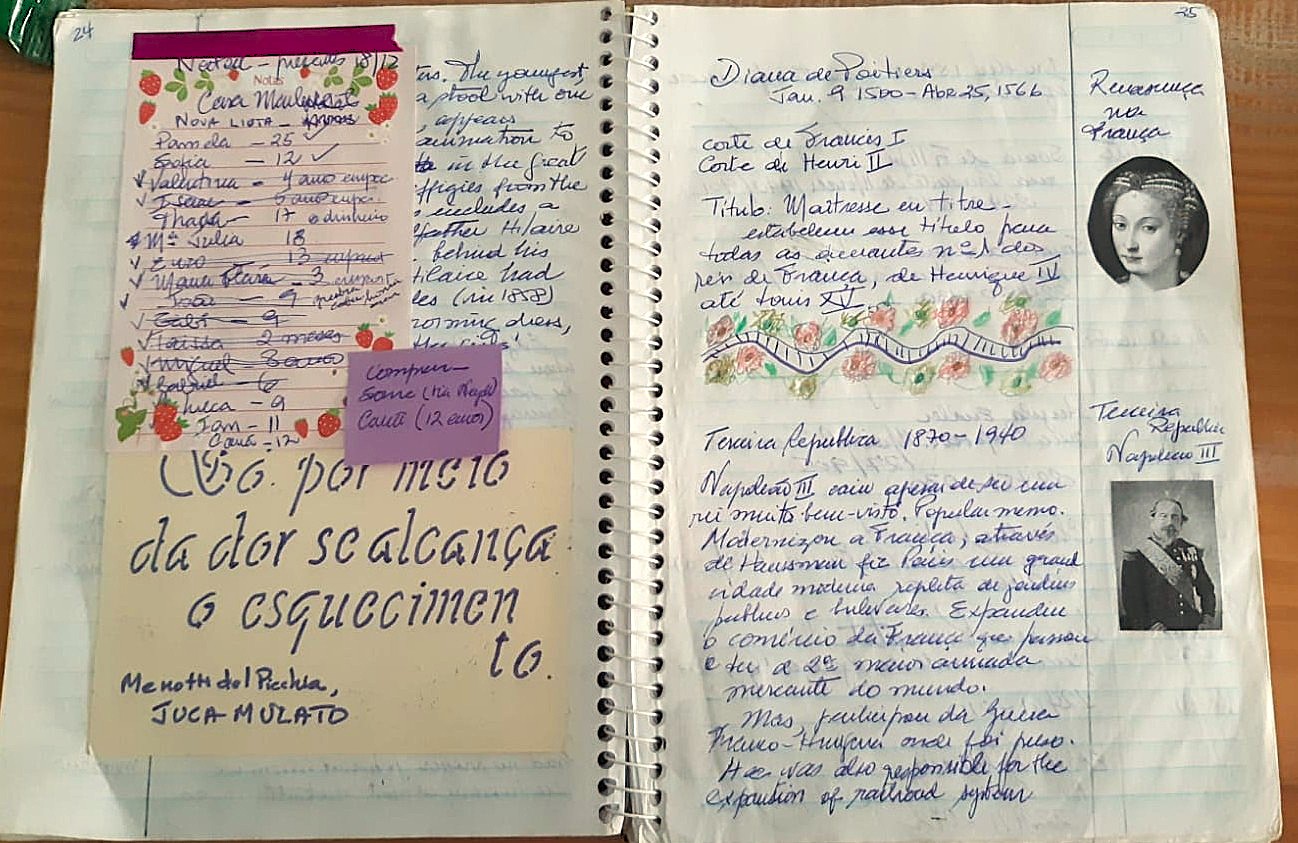 24
Natal - presentes 18/12
Notas
Casa
NOVA LISTA -
Pamela - 25 ✓
Sofia - 12 ✓
Valentina - 4 anos
- 5 anos
- 17 dinheiro
Mª Julia 18
Enzo - 13
Maria Clara - 3
João - 9
Gabi - 9
2 meses
Miguel 3 anos
Gabriel - 6
- 9
Ian - 11
Cauã - 12
Comprar -
Cauã (12 anos)
The youngest
a stool with one
appears
animation to
in the great
effigies from the
includes a
father Hilaire
behind his
Hilaire had
(in 1858)
morning dress,
Só por meio
da dor se alcança
o esquecimen
to.
Menotti del Picchia,
JUCA MULATO
25
Diana de Poitiers
Jan. 9 1500 - Abr 25, 1566
corte de Francis I
Corte de Henri II
Titulo: Maitresse en titre -
estabeleceu esse título para
todas as amantes nº 1 dos
reis de França, de Henrique IV
até Louis XV.
Renascença
na
França
Terceira Republica 1870-1940
Terceira
Republica
Napoleão III
Napoleão III caiu apesar de ser um
rei muito bem-visto. Popular mesmo.
Modernizou a França, através
de Haussman fez Paris uma grand
cidade moderna repleta de jardins
publicos e bulevares. Expandiu
o comércio da França que passou
a ter a 2ª maior armada
mercante do mundo.
Mas, participou da Guerra
Franco- onde foi preso.
He was also responsible for the
expantion of railroad system